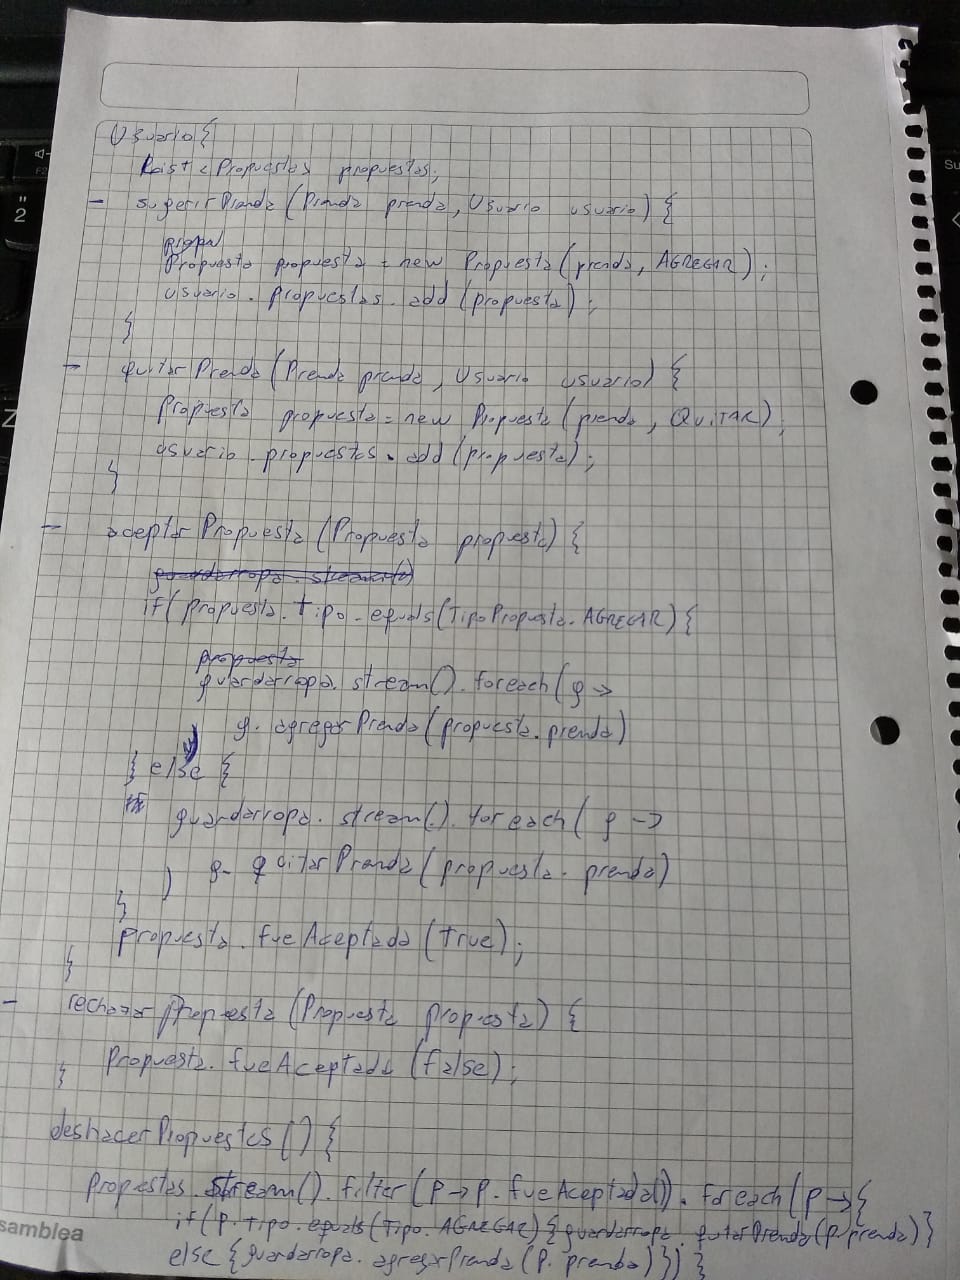 Usuario {
List <Propuestas> propuestas;
- sugerirPrenda (Prenda prenda, Usuario usuario) {
propu
Propuesta propuesta = new Propuesta (prenda, AGREGAR);
usuario. propuestas. add (propuesta);
}
- quitarPrenda (Prenda prenda, Usuario usuario) {
Propuesta propuesta = new Propuesta (prenda, QUITAR);
usuario. propuestas. add (propuesta);
}
- aceptarPropuesta (Propuesta propuesta) {
guardarropa. stream()
if( propuesta. tipo. equals (TipoPropuesta. AGREGAR) {
propuesta
guardarropa. stream(). foreach ( g ->
g. agregarPrenda (propuesta. prenda)
} else {
guardarropa. stream(). foreach ( g ->
g. quitarPrenda (propuesta. prenda)
)
}
propuesta. fueAceptada (true);
}
- rechazarPropuesta (Propuesta propuesta) {
Propuesta. fueAceptada (false);
}
deshacerPropuestas () {
propuestas. stream(). filter (p -> p. fueAceptada()). foreach ( p -> {
if (p. tipo. equals (Tipo. AGREGAR) { guardarropa. quitarPrenda (p. prenda) }
else { guardarropa. agregarPrenda (p. prenda) } ) }
samblea
"
2
F2
Z
Su